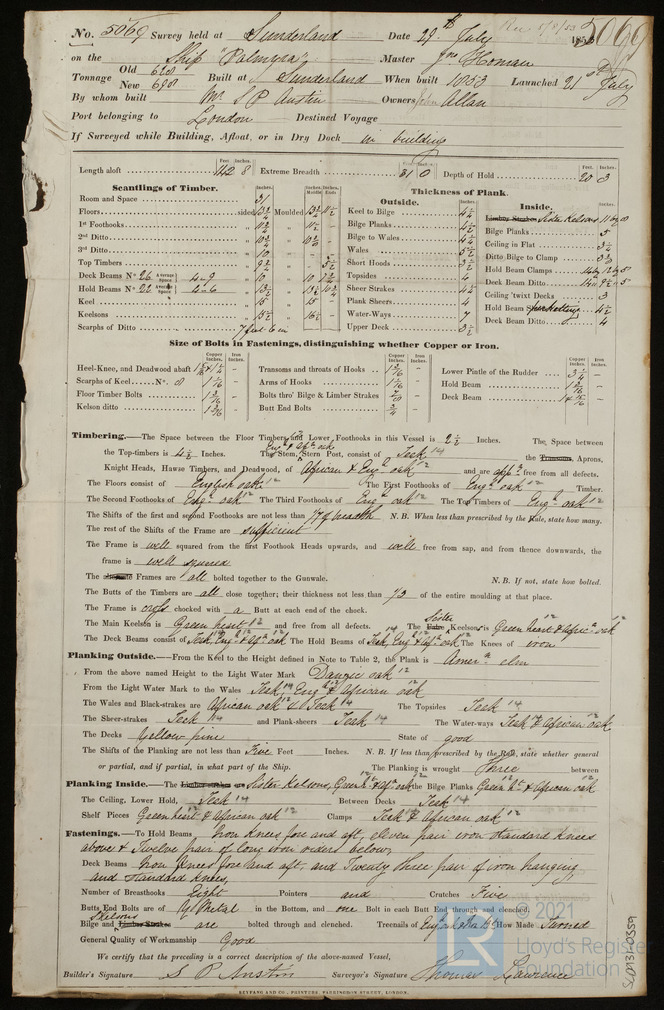 No. 5069 Survey held at Sunderland Date 29th July 185 5069
on the Ship "Palmyra" Master Jno Homan
Tonnage Old 628 New 698 Built at Sunderland When built 1853 Launched 21st July
By whom built Mr S P Austin Owners John Allan
Port belonging to London Destined Voyage
If Surveyed while Building, Afloat, or in Dry Dock in building
Feet. Inches.
Length aloft 142 8 Extreme Breadth 31 0 Depth of Hold 20 3
Scantlings of Timber.
Room and Space 31
Floors sided 13 1/2 Moulded
1st Foothooks
2nd Ditto
3rd Ditto 10
Top Timbers
Deck Beams No 26 Average Space 4-9 10
Hold Beams No 22 Average Space
Keel 15 15
Keelsons 15 1/2 16 1/2
Scarphs of Ditto 7 feet 6 in
Thickness of Plank.
Outside.
Keel to Bilge 4 1/2
Bilge Planks 4 1/2
Bilge to Wales 4 1/2
Wales 5 1/2
Short Hoods 3 1/2
Topsides 4
Sheer Strakes 4 1/2
Plank Sheers 4
Water-Ways 7
Upper Deck 3 1/2
Inside.
Limber Strakes Sister Kelsons
Bilge Planks 5
Ceiling in Flat
Ditto Bilge to Clamp
Hold Beam Clamps
Deck Beam Ditto
Ceiling 'twixt Decks 3
Hold Beam 4 1/2
Deck Beam Ditto 4
Size of Bolts in Fastenings, distinguishing whether Copper or Iron.
Copper Inches. Iron Inches.
Heel-Knee, and Deadwood abaft
Scarphs of Keel No. 8 1 1/16
Floor Timber Bolts 1 3/16
Kelson ditto 1 3/16
Transoms and throats of Hooks 1 3/16
Arms of Hooks 1 1/16
Bolts thro' Bilge & Limber Strakes 7/8
Butt End Bolts 3/4
Lower Pintle of the Rudder 3 1/4
Hold Beam 1 3/16
Deck Beam
Timbering.—The Space between the Floor Timbers and Lower Foothooks in this Vessel is 2 1/2 Inches. The Space between
the Top-timbers is 4 1/2 Inches. The Stem, Stern Post, consist of Engh & Afn oak Teak 14 the Transoms, Aprons,
Knight Heads, Hawse Timbers, and Deadwood, of African & Engh oak 12 and are appr free from all defects.
The Floors consist of English oak 12 The First Foothooks of Engh oak 12 Timber.
The Second Foothooks of Engh oak 12 The Third Foothooks of Engh oak 12 The Top Timbers of Engh oak 12
The Shifts of the first and second Foothooks are not less than N. B. When less than prescribed by the Rule, state how many.
The rest of the Shifts of the Frame are sufficient
The Frame is well squared from the first Foothook Heads upwards, and well free from sap, and from thence downwards, the
frame is well squared
The Frames are all bolted together to the Gunwale. N. B. If not, state how bolted.
The Butts of the Timbers are all close together; their thickness not less than 1/3 of the entire moulding at that place.
The Frame is cross chocked with a Butt at each end of the chock.
The Main Keelson is Green heart 12 and free from all defects. The Sister Keelsons is Green heart & African oak 12
The Deck Beams consist of Teak, Engh & Afn oak The Hold Beams of Teak, Engh & Afn oak The Knees of iron
Planking Outside.—From the Keel to the Height defined in Note to Table 2, the Plank is Amern elm
From the above named Height to the Light Water Mark Danzic oak 12
From the Light Water Mark to the Wales Teak 14 Engh & African oak
The Wales and Black-strakes are African oak 12 & Teak 14 The Topsides Teak 14
The Sheer-strakes Teak 14 and Plank-sheers Teak 14 The Water-ways Teak 14 & African oak 12
The Decks Yellow pine State of good
The Shifts of the Planking are not less than Five Feet Inches. N. B. If less than prescribed by the Rule, state whether general
or partial, and if partial, in what part of the Ship. The Planking is wrought Three between
Planking Inside.—The Limber-strakes are Sister Kelsons, Green ht & Afn oak the Bilge Planks Green ht & African oak
The Ceiling, Lower Hold, Teak 14 Between Decks Teak 14
Shelf Pieces Green heart & African oak 12 Clamps Teak & African oak 12
Fastenings.—To Hold Beams, Iron Knees fore and aft, eleven pair iron standard knees
above & Twelve pair of long iron riders below,
Deck Beams Iron Knees fore and aft, and Twenty three pair of iron hanging
and standard knees,
Number of Breasthooks Eight Pointers and Crutches Five
Butts End Bolts are of Y Metal in the Bottom, and one Bolt in each Butt End through and clenched.
Bilge and Limber Strakes Skelsons are bolted through and clenched. Treenails of How Made Turned
General Quality of Workmanship Good
We certify that the preceding is a correct description of the above-named Vessel,
Builder's Signature S P Austin Surveyor's Signature Thomas Lawrence
SEYFANG AND CO., PRINTERS, FARRINGDON STREET, LONDON.
© 2021
Lloyd's Register
Foundation